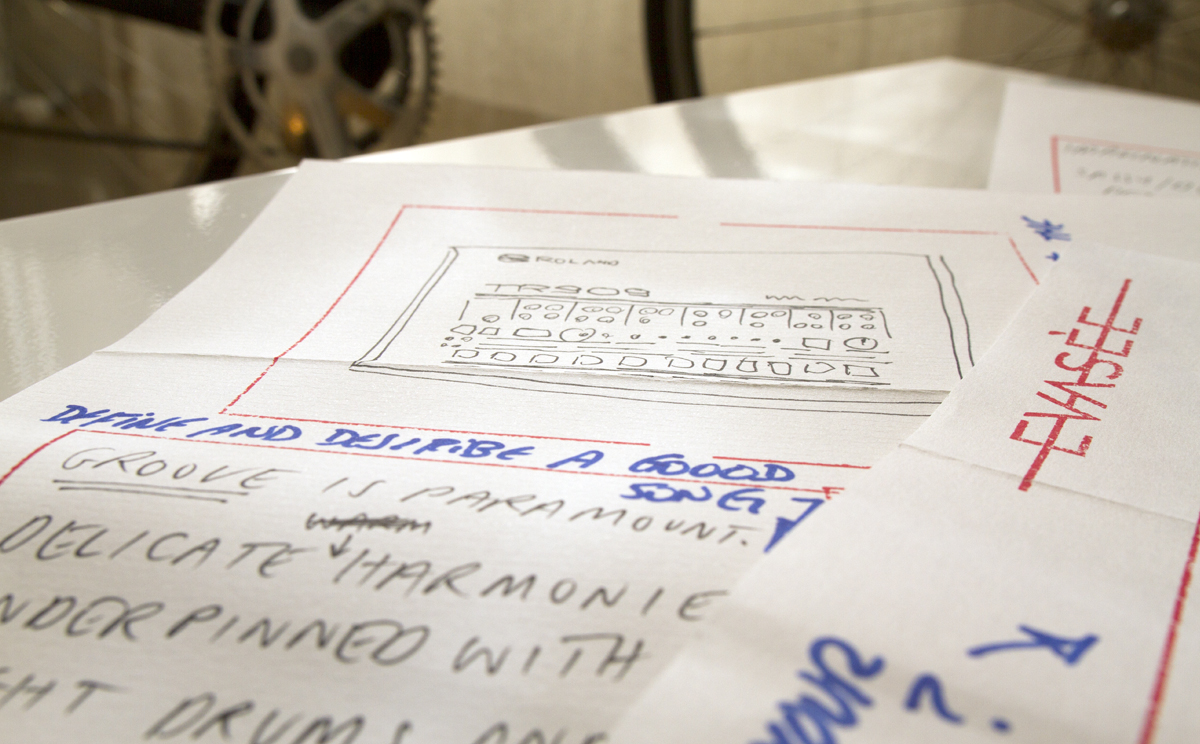 ROLAND
TR909
DEFINE AND DESCRIBE A GOOOD
SONG
GROOVE IS PARAMOUNT.
WARM
DELICATE HARMONIE
NDERPINNED WITH
HT DRUMS AND
EVASÉE
YOUR
?